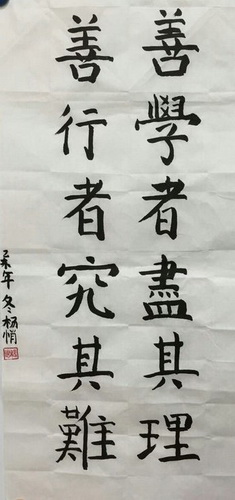 善學者盡其理
善行者究其難
年冬楊悄